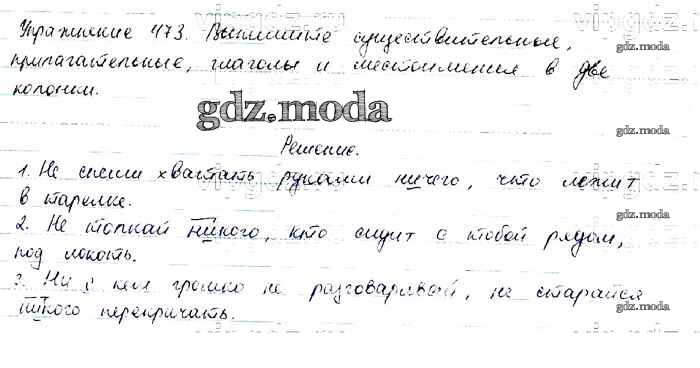 Упражнение 473. Выпишите существительные,
прилагательные, глаголы и местоимения в две
колонки.
gdz.moda
gdz.moda
gdz.moda
Решение.
gdz.moda
1. Не спеши хватать руками ничего, что лежит
в тарелке.
gdz.moda
2. Не толкай никого, кто сидит с тобой рядом,
под локоть.
gdz.moda
3. Ни с кем громко не разговаривай, не старайся
никого перекричать.
gdz.moda